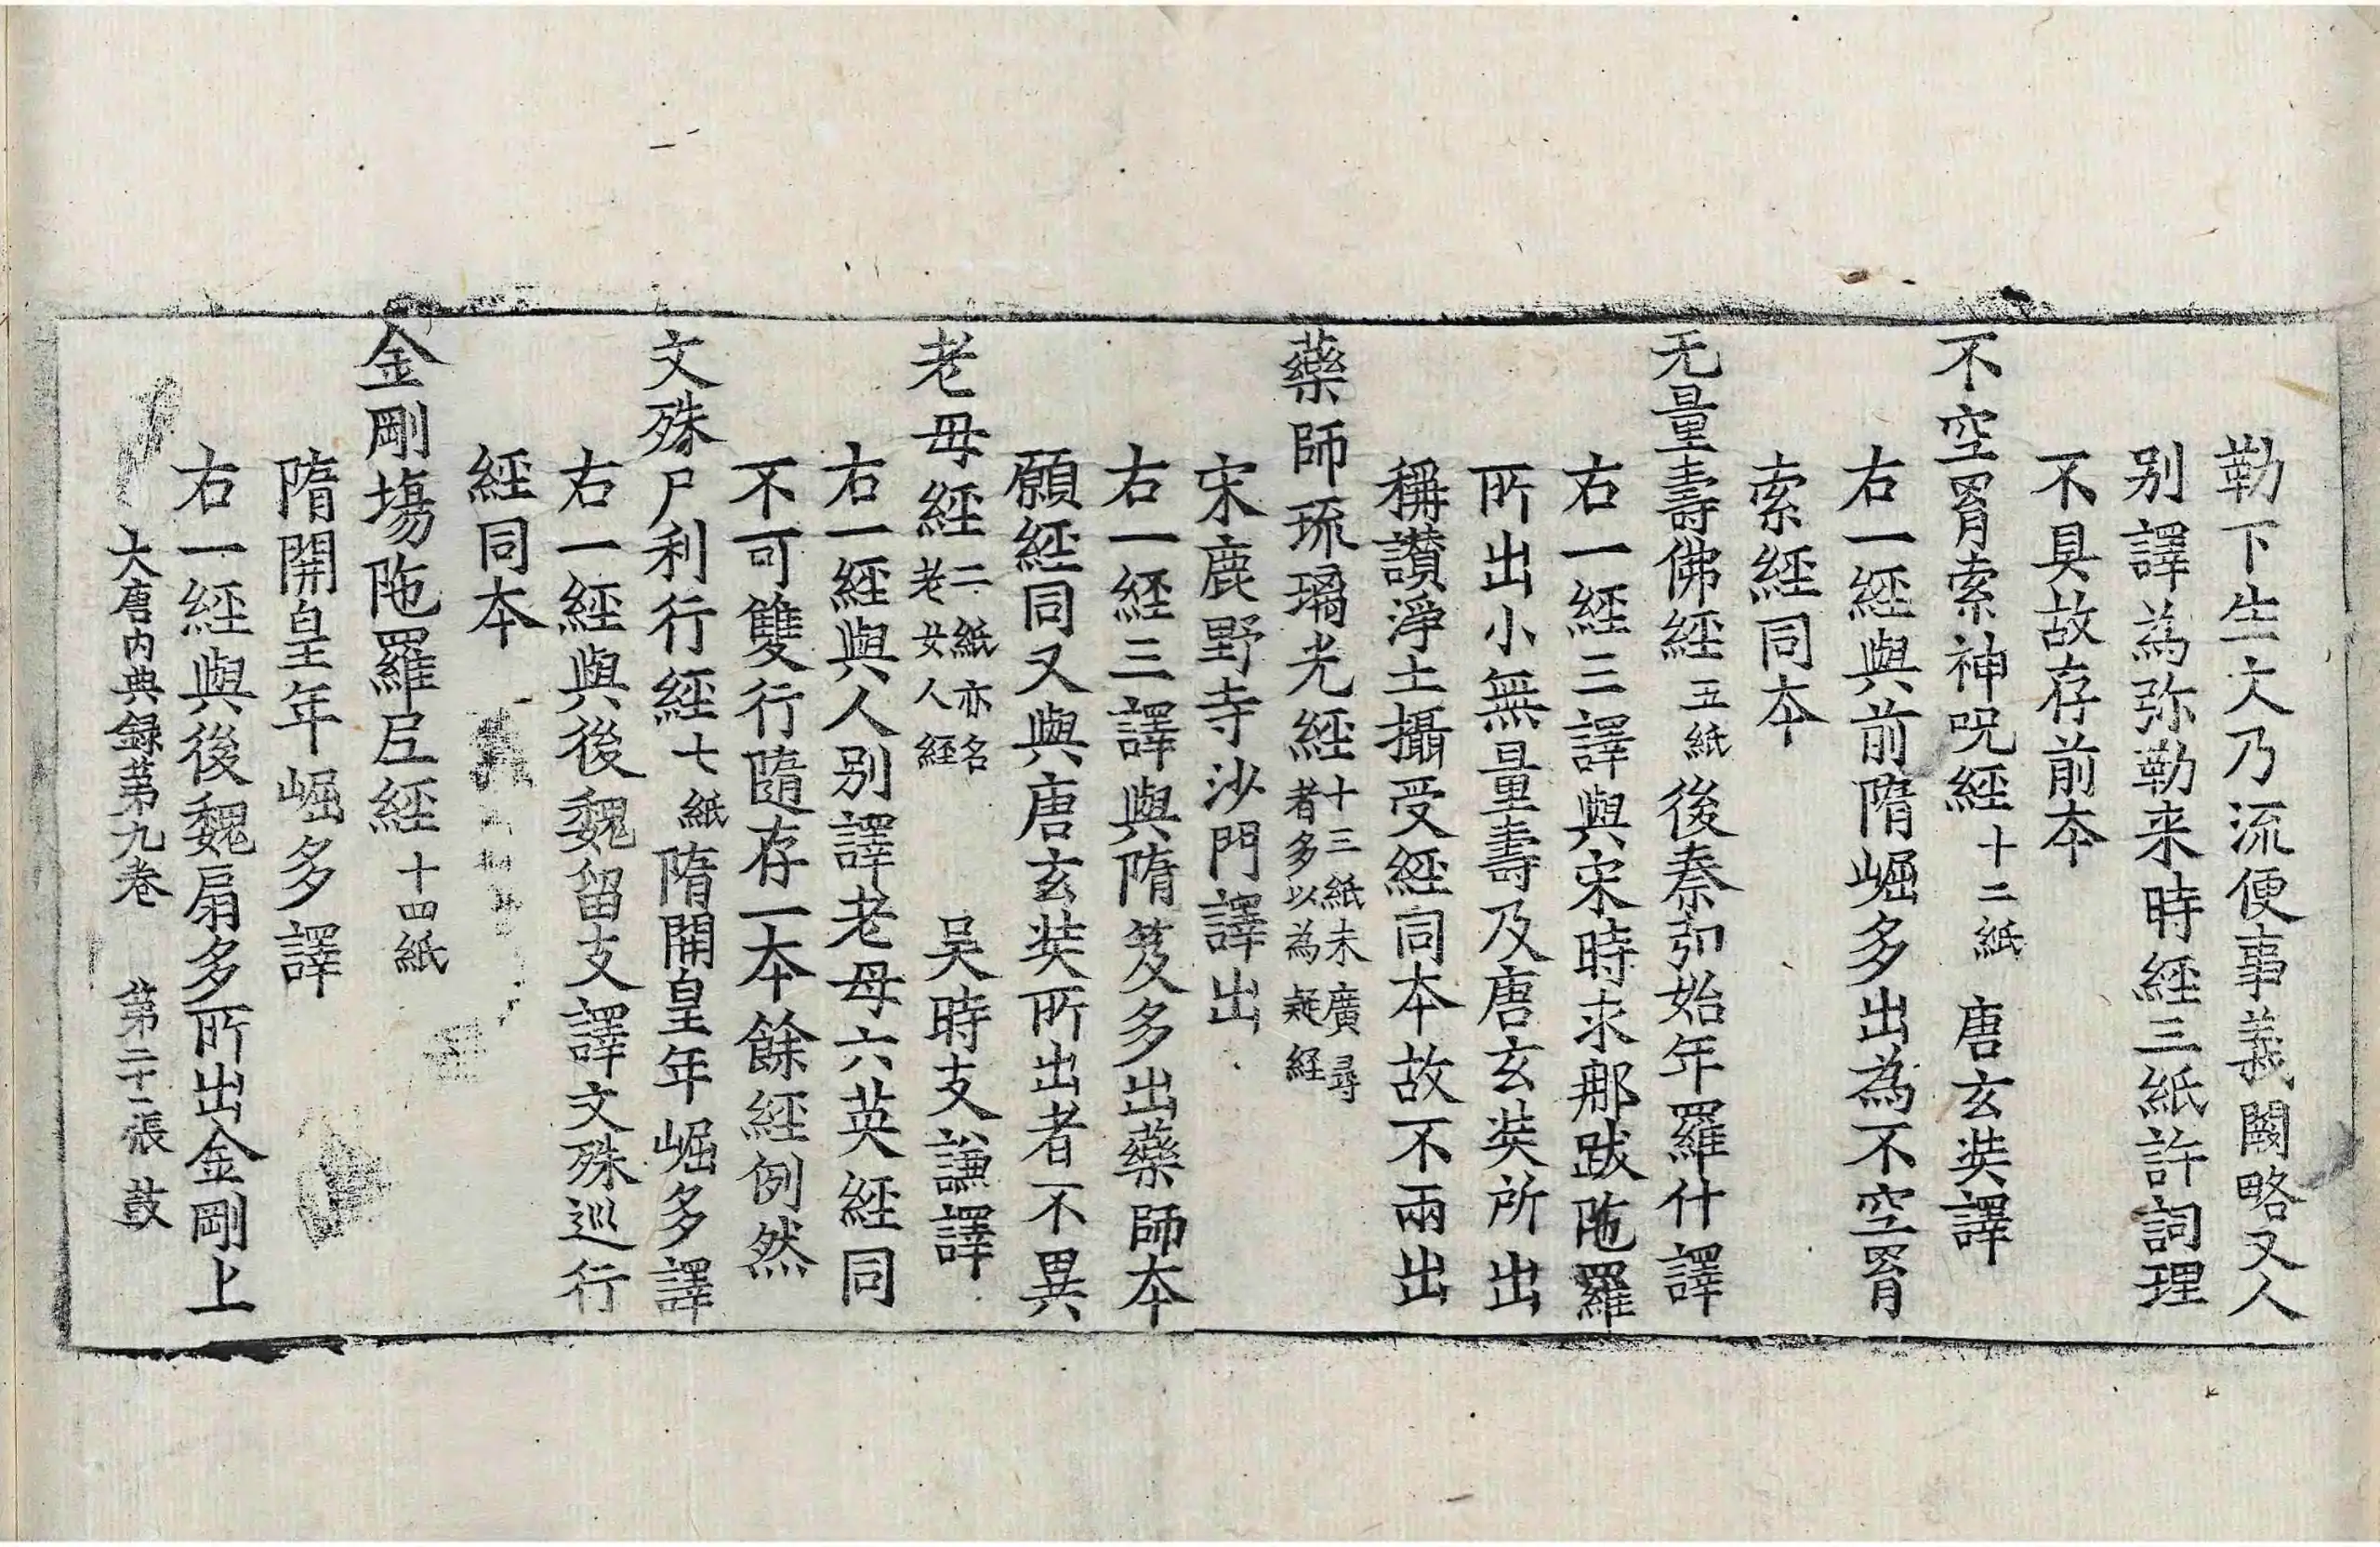 勒下生大乃流便事義闕略又人
别譯為弥勒来時經三紙許詞理
不具故存前本
不空罥索神呪經十二紙 唐玄奘譯
右一經與前隋崛多出為不空罥
索經同本
无量壽佛經五紙後秦弘始年羅什譯
右一經三譯與宋時求那跋陁羅
所出小無量壽及唐玄奘所出
稱讃淨土攝受經同本故不兩出
藥師琉璃光經十三紙未廣尋
者多以為疑經
宋鹿野寺沙門譯出
右一經三譯與隋笈多出藥師本
願經同又與唐玄奘所出者不異
老母經二紙亦名
老女人經 吴時支謙譯
右一經與人别譯老母六英經同
不可雙行隨存一本餘經例然
文殊尸利行經七紙隋開皇年崛多譯
右一經與後魏留支譯文殊巡行
經同本
金剛塲陁羅尼經十四紙
隋開皇年崛多譯
右一經與後魏扇多所出金剛上
大唐内典録苐九卷 苐二十二張 鼓